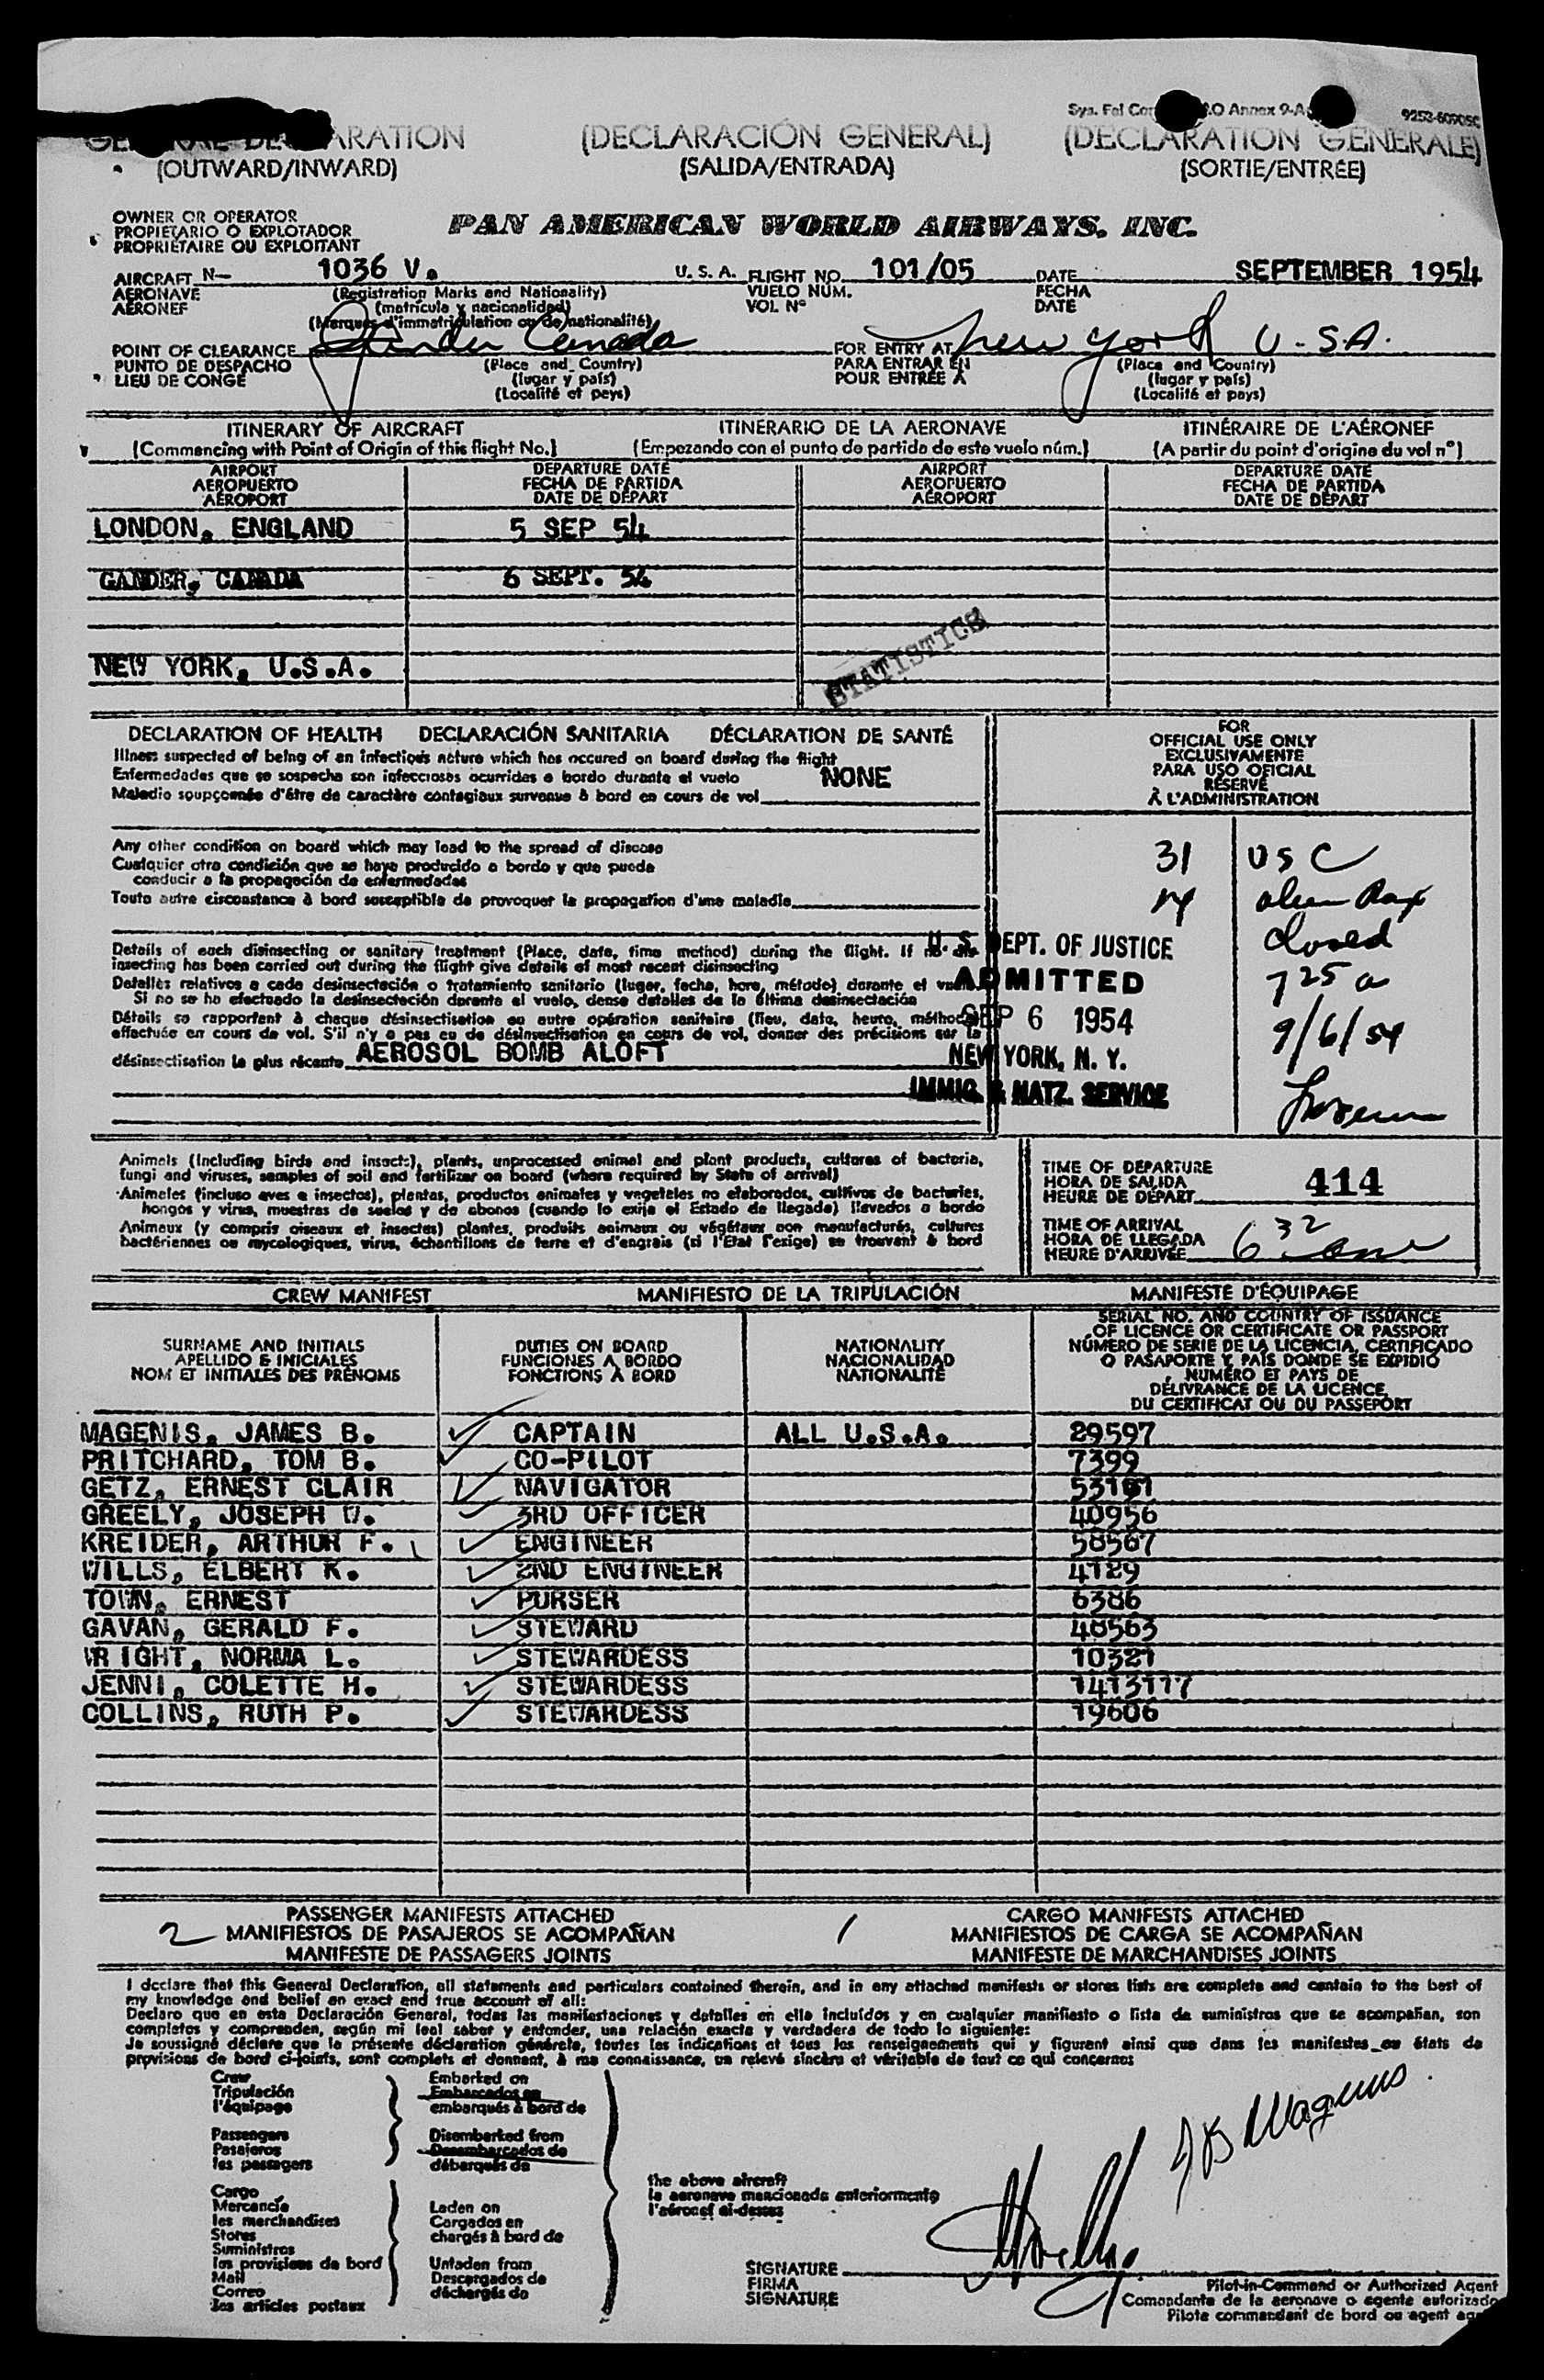 9253-6090SC
(DECLARACIÓN GENERAL)
(DÉCLARATION GÉNÉRALE)
(OUTWARD/INWARD)
(SALIDA/ENTRADA)
(SORTIE/ENTRÉE)
OWNER OR OPERATOR
PROPIETARIO O EXPLOTADOR
PROPRIÉTAIRE OU EXPLOITANT
PAN AMERICAN WORLD AIRWAYS, INC.
AIRCRAFT N— 1036 V. U. S. A. FLIGHT NO. 101/05 DATE SEPTEMBER 1954
AERONAVE (Registration Marks and Nationality) VUELO NÚM. FECHA
AÉRONEF (matrícula y nacionalidad) VOL Nº DATE
(Marques d'immatriculation ou de nationalité)
POINT OF CLEARANCE Gander Canada FOR ENTRY AT New York U.S.A.
PUNTO DE DESPACHO (Place and Country) PARA ENTRAR EN (Place and Country)
LIEU DE CONGÉ (lugar y país) POUR ENTRÉE À (lugar y país)
(Localité et pays) (Localité et pays)
ITINERARY OF AIRCRAFT ITINERARIO DE LA AERONAVE ITINÉRAIRE DE L'AÉRONEF
(Commencing with Point of Origin of this flight No.) (Empezando con el punto de partida de este vuelo núm.) (A partir du point d'origine du vol nº)
AIRPORT DEPARTURE DATE AIRPORT DEPARTURE DATE
AEROPUERTO FECHA DE PARTIDA AEROPUERTO FECHA DE PARTIDA
AÉROPORT DATE DE DÉPART AÉROPORT DATE DE DÉPART
LONDON, ENGLAND 5 SEP 54
GANDER, CANADA 6 SEPT. 54
NEW YORK, U.S.A.
STATISTICS
DECLARATION OF HEALTH DECLARACIÓN SANITARIA DÉCLARATION DE SANTÉ
Illness suspected of being of an infectious nature which has occured on board during the flight
Enfermedades que se sospecha son infecciosas ocurridas a bordo durante el vuelo NONE
Maladie soupçonnée d'être de caractère contagieux survenue à bord en cours de vol
Any other condition on board which may lead to the spread of disease
Cualquier otra condición que se haya producido a bordo y que pueda
conducir a la propagación de enfermedades
Toute autre circonstance à bord susceptible de provoquer la propagation d'une maladie
Details of each disinsecting or sanitary treatment (Place, date, time method) during the flight. If no dis-
insecting has been carried out during the flight give details of most recent disinsecting
Detalles relativos a cada desinsectación o tratamiento sanitario (lugar, fecha, hora, método) durante el vuelo
Si no se ha efectuado la desinsectación durante el vuelo, dense detalles de la última desinsectación
Détails se rapportant à chaque désinsectisation ou autre opération sanitaire (lieu, date, heure, méthode)
effectuée en cours de vol. S'il n'y a pas eu de désinsectisation en cours de vol, donner des précisions sur la
désinsectisation la plus récente AEROSOL BOMB ALOFT
FOR
OFFICIAL USE ONLY
EXCLUSIVAMENTE
PARA USO OFICIAL
RÉSERVÉ
À L'ADMINISTRATION
31 USC
14 alien Pax
closed
7 25 a
9/6/54
U. S. DEPT. OF JUSTICE
ADMITTED
SEP 6 1954
NEW YORK, N. Y.
IMMIG. & NATZ. SERVICE
Animals (Including birds and insects), plants, unprocessed animal and plant products, cultures of bacteria,
fungi and viruses, samples of soil and fertilizer on board (where required by State of arrival)
Animales (incluso aves e insectos), plantas, productos animales y vegetales no elaborados, cultivos de bacterias,
hongos y virus, muestras de suelos y de abonos (cuando lo exija el Estado de llegada) llevados a bordo
Animaux (y compris oiseaux et insectes) plantes, produits animaux ou végétaux non manufacturés, cultures
bactériennes ou mycologiques, virus, échantillons de terre et d'engrais (si l'État l'exige) se trouvant à bord
TIME OF DEPARTURE
HORA DE SALIDA
HEURE DE DÉPART 414
TIME OF ARRIVAL
HORA DE LLEGADA
HEURE D'ARRIVÉE 6 32 am
CREW MANIFEST MANIFIESTO DE LA TRIPULACIÓN MANIFESTE D'ÉQUIPAGE
SURNAME AND INITIALS
APELLIDO E INICIALES
NOM ET INITIALES DES PRÉNOMS
DUTIES ON BOARD
FUNCIONES A BORDO
FONCTIONS À BORD
NATIONALITY
NACIONALIDAD
NATIONALITÉ
SERIAL NO. AND COUNTRY OF ISSUANCE
OF LICENCE OR CERTIFICATE OR PASSPORT
NÚMERO DE SERIE DE LA LICENCIA, CERTIFICADO
O PASAPORTE Y PAÍS DONDE SE EXPIDIÓ
NUMÉRO ET PAYS DE
DÉLIVRANCE DE LA LICENCE,
DU CERTIFICAT OU DU PASSEPORT
MAGENIS, JAMES B. CAPTAIN ALL U.S.A. 29597
PRITCHARD, TOM B. CO-PILOT 7399
GETZ, ERNEST CLAIR NAVIGATOR
GREELY, JOSEPH W. 3RD OFFICER 40956
KREIDER, ARTHUR F. ENGINEER 58567
WILLS, ELBERT K. 2ND ENGINEER 4129
TOWN, ERNEST PURSER 6386
GAVAN, GERALD F. STEWARD 48563
WRIGHT, NORMA L. STEWARDESS 10321
JENNI, COLETTE H. STEWARDESS 1413117
COLLINS, RUTH P. STEWARDESS 19606
PASSENGER MANIFESTS ATTACHED CARGO MANIFESTS ATTACHED
2 MANIFIESTOS DE PASAJEROS SE ACOMPAÑAN 1 MANIFIESTOS DE CARGA SE ACOMPAÑAN
MANIFESTE DE PASSAGERS JOINTS MANIFESTE DE MARCHANDISES JOINTS
I declare that this General Declaration, all statements and particulars contained therein, and in any attached manifests or stores lists are complete and contain to the best of
my knowledge and belief an exact and true account of all:
Declaro que en esta Declaración General, todas las manifestaciones y detalles en ella incluídos y en cualquier manifiesto o lista de suministros que se acompañan, son
completos y comprenden, según mi leal saber y entender, una relación exacta y verdadera de todo lo siguiente:
Je soussigné déclare que la présente déclaration générale, toutes les indications et tous les renseignements qui y figurent ainsi que dans les manifestes ou états de
provisions de bord ci-joints, sont complets et donnent, à ma connaissance, un relevé sincère et véritable de tout ce qui concerne:
Crew
Tripulación
l'équipage
Passengers
Pasajeros
les passagers
Cargo
Mercancía
les marchandises
Stores
Suministros
les provisions de bord
Mail
Correo
les articles postaux
Embarked on
Embarcados en
embarqués à bord de
Disembarked from
Desembarcados de
débarqués de
Laden on
Cargados en
chargés à bord de
Unladen from
Descargados de
déchargés de
the above aircraft
la aeronave mencionada anteriormente
l'aéronef ci-dessus
JB Magenis
SIGNATURE
FIRMA
SIGNATURE
Pilot-in-Command or Authorized Agent
Comandante de la aeronave o agente autorizado
Pilote commandant de bord ou agent